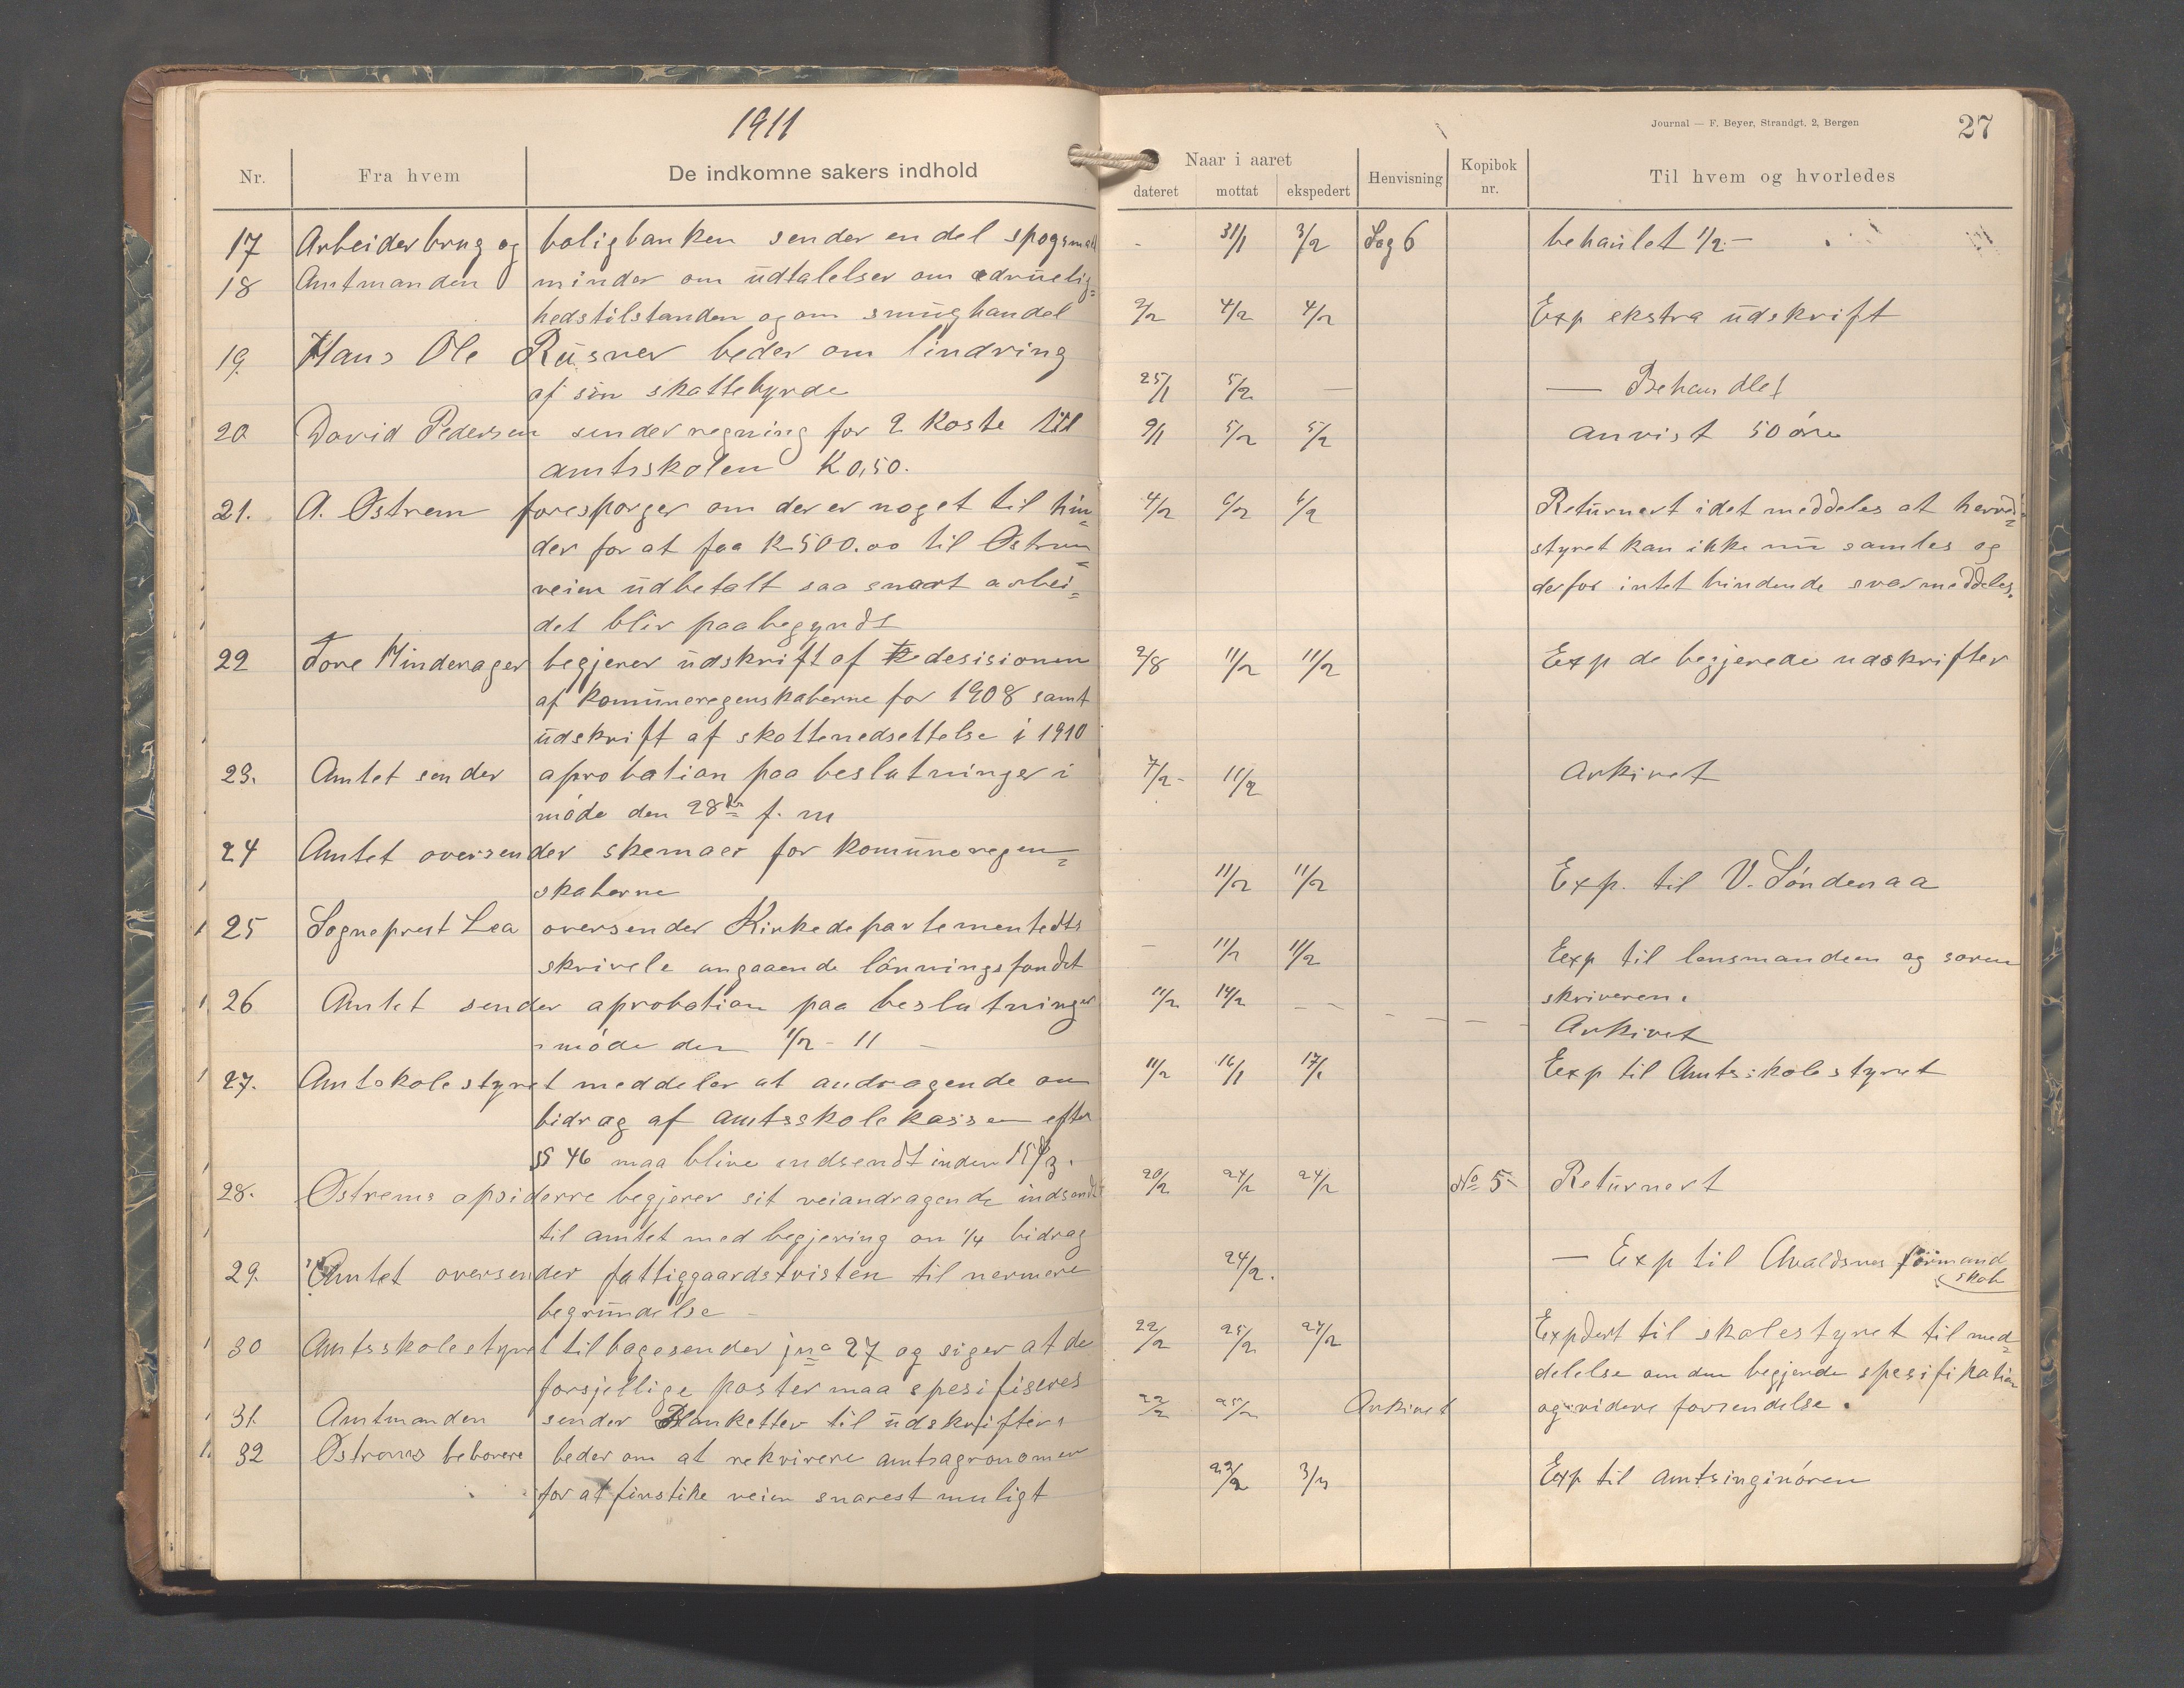 1911
Nr. Fra hvem De indkomne sakers indhold
17 Arbeiderbrug og boligbanken sender en del spøgsmaal
18 Amtmanden minder om udtalelser om ædruelig=
hedstilstanden og om smughandel
19 Hans Ole Rusnes beder om lindring
af sin skattebyrde
20 David Pedersen sender regning for 2 koste til
amtsskolen K 0,50.
21. A. Østrem forespørger om der er noget til hin=
der for at faa K 500.00 til Østrem
veien udbetalt saa snart arbei=
det blir paabegyndt
22 Tore Mindenager begjerer udskrift af desisionen
af Komuneregenskaberne for 1908 samt
udskrift af skattenedsettelse i 1910
23. Amtet sender aprobation paa beslutninger i
møde den 28de f. m
24 Amtet oversender skemaer for komuneregen=
skaberne
25 Sogneprest Lea oversender Kirkedepartementedts
skrivele angaaende lønningsfondet
26 Amtet sender aprobation paa beslutninger
i møde den 1/2 - 11 -
27. Amtskolestyret meddeler at andragende om
bidrag af amtsskolekassen efter
§ 46 maa blive indsendt inden 15/3.
28. Østrems opsiderre begjerer sit veiandragende indsendt
til amtet med begjering om 1/4 bidrag
29. Amtet oversender fattiggaardstvisten til nermere
begrundelse -
30 Amtsskolestyret tilbagesender jno 27 og siger at de
forsjellige poster maa spesifiseres
31. Amtmanden sender Blanketter til udskrifter
32 Østrems beboere beder om at rekvirere amtsagronomen
for at finstike veien snarest muligt
Journal — F. Beyer, Strandgt. 2, Bergen
27
Naar i aaret
dateret mottat ekspedert Henvisning Kopibok nr. Til hvem og hvorledes
- 31/1 3/2 Sag 6 behanlet 1/2 -
2/2 4/2 4/2 Exp ekstra udskrift
25/1 5/2 — — Behandles
9/1 5/2 5/2 anvist 50 øre
4/2 6/2 6/2 Returnert idet meddeles at herreds=
styret kan ikke nu samles og
derfor intet bindende svar meddeles.
2/8 11/2 11/2 Exp de begjerede udskrifter
7/2 - 11/2 Arkivet
11/2 11/2 Exp. til V. Søndenaa
- 11/2 11/2 Exp til lensmanden og soren
skriveren.
11/2 14/2 - - - - - - Arkivet
11/2 16/1 17/1 Exp til Amtsskolestyret
20/2 24/2 24/2 No 5 - Returnert
24/2. — Exp til Avaldsnes formand
skab
22/2 25/2 27/2 Expdert til skolestyret til med=
delelse om den begjerde spesifikation
og videre forsendelse.
22/2 25/2 Arkivet
23/2 3/3 Exp til amtsinginøren